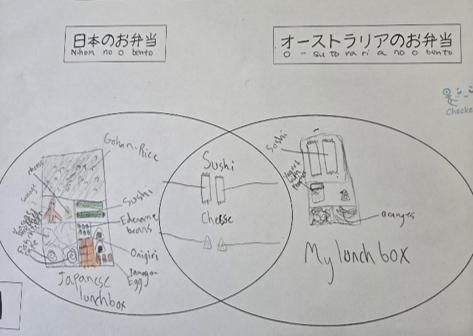 日本のお弁当
Nihon no o bento
オーストラリアのお弁当
O - su to ra ri a no o bento
Checke
Gohan-Rice
Sushi
Edename
beans
Onigiri
Tamago-
Egg
Japanese
lunchbox
Sushi
Cheese
Sushi
oranges
My lunch box